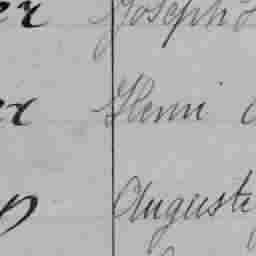 er Joseph
er Henri
Auguste